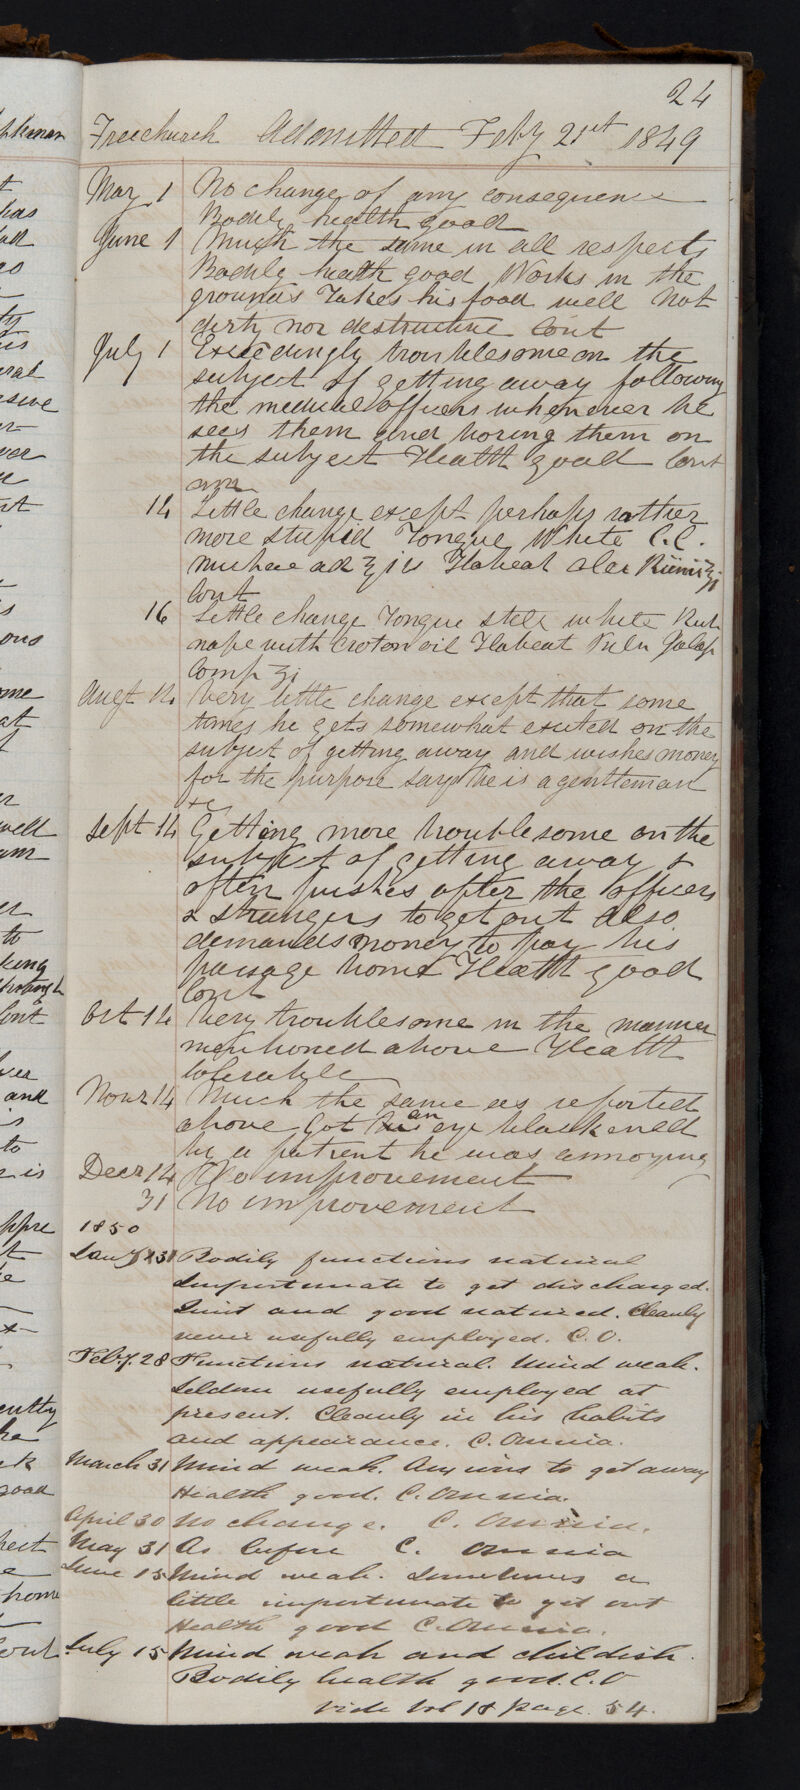 24
Freechurch Admitted Feby 21st 1849
May 1 No change of any consequence
Bodily health good
June 1 Much the same in all respects
Bodily health good Works in the
grounds Takes his food well Not
dirty nor destructive Cont
July 1 Exceedingly troublesome on the
subject of getting away following
the medical officers whenever he
sees them and boring them on
the subject Health good Cont
14 Little change except perhaps rather
more stupid Tongue White C.C.
nuchae ad ℥iv Habeat Olei Ricini ℥j
Cont
16 Little change Tongue still white Rub
nape with croton oil Habeat Pulv Jalap
Comp ʒi
Augt 14 Very little change except that some
times he gets somewhat excited on the
subject of getting away and wishes money
for the purpose says he is a gentleman
&c
Sept 14 Getting more troublesome on the
subject of getting away &
often pushes after the officers
& strangers to get out Also
demands money to pay his
passage home Health good
Cont
Oct 14 Very troublesome in the manner
mentioned above Health
tolerable
Novr 14 Much the same as reported
above Got an eye blackened
by a patient he was annoying
Decr 14 No improvement
31 No improvement
1850
Jany 31 Bodily functions natural
Importunate to get discharged.
Quiet and good natured. Cleanly
never usefully employed. C. O.
Feby. 28 Functions natural. Mind weak.
Seldom usefully employed at
present. Cleanly in his habits
and appearance. C. Omnia.
March 31 Mind weak. Anxious to get away
Health good. C. Omnia.
April 30 No change. C. Omnia.
May 31 As before C. Omnia
June 15 Mind weak. Sometimes a
little importunate to get out
Health good C. Omnia.
July 15 Mind weak and childish.
Bodily health good. C. O
Vide Vol 18 page. 54.